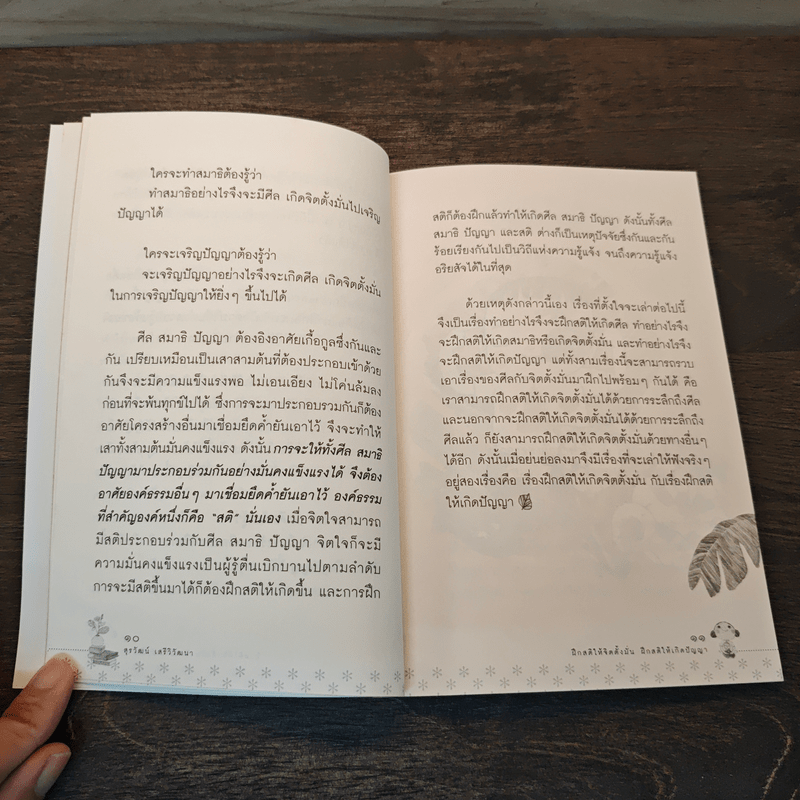 ใครจะทำสมาธิต้องรู้ว่า
ทำสมาธิอย่างไรจึงจะมีศีล เกิดจิตตั้งมั่นไปเจริญ
ปัญญาได้
ใครจะเจริญปัญญาต้องรู้ว่า
จะเจริญปัญญาอย่างไรจึงจะเกิดศีล เกิดจิตตั้งมั่น
ในการเจริญปัญญาให้ยิ่งๆ ขึ้นไปได้
ศีล สมาธิ ปัญญา ต้องอิงอาศัยเกื้อกูลซึ่งกันและ
กัน เปรียบเหมือนเป็นเสาสามต้นที่ต้องประกอบเข้าด้วย
กันจึงจะมีความแข็งแรงพอ ไม่เอนเอียง ไม่โค่นล้มลง
ก่อนที่จะพ้นทุกข์ไปได้ ซึ่งการจะมาประกอบรวมกันก็ต้อง
อาศัยโครงสร้างอื่นมาเชื่อมยึดค้ำยันเอาไว้ จึงจะทำให้
เสาทั้งสามต้นมั่นคงแข็งแรง ดังนั้นการจะให้ทั้งศีล สมาธิ
ปัญญามาประกอบร่วมกันอย่างมั่นคงแข็งแรงได้ จึงต้อง
อาศัยองค์ธรรมอื่นๆ มาเชื่อมยึดค้ำยันเอาไว้ องค์ธรรม
ที่สำคัญองค์หนึ่งก็คือ "สติ" นั่นเอง เมื่อจิตใจสามารถ
มีสติประกอบร่วมกับศีล สมาธิ ปัญญา จิตใจก็จะมี
ความมั่นคงแข็งแรงเป็นผู้รู้ตื่นเบิกบานไปตามลำดับ
การจะมีสติขึ้นมาได้ก็ต้องฝึกสติให้เกิดขึ้น และการฝึก
๑๐
สุรวัฒน์ เสรีวิวัฒนา
สติก็ต้องฝึกแล้วทำให้เกิดศีล สมาธิ ปัญญา ดังนั้นทั้งศีล
สมาธิ ปัญญา และสติ ต่างก็เป็นเหตุปัจจัยซึ่งกันและกัน
ร้อยเรียงกันไปเป็นวิถีแห่งความรู้แจ้ง จนถึงความรู้แจ้ง
อริยสัจได้ในที่สุด
ด้วยเหตุดังกล่าวนี้เอง เรื่องที่ตั้งใจจะเล่าต่อไปนี้
จึงเป็นเรื่องทำอย่างไรจึงจะฝึกสติให้เกิดศีล ทำอย่างไรจึง
จะฝึกสติให้เกิดสมาธิหรือเกิดจิตตั้งมั่น และทำอย่างไรจึง
จะฝึกสติให้เกิดปัญญา แต่ทั้งสามเรื่องนี้จะสามารถรวบ
เอาเรื่องของศีลกับจิตตั้งมั่นมาฝึกไปพร้อมๆ กันได้ คือ
เราสามารถฝึกสติให้เกิดจิตตั้งมั่นได้ด้วยการระลึกถึงศีล
และนอกจากจะฝึกสติให้เกิดจิตตั้งมั่นได้ด้วยการระลึกถึง
ศีลแล้ว ก็ยังสามารถฝึกสติให้เกิดจิตตั้งมั่นด้วยทางอื่นๆ
ได้อีก ดังนั้นเมื่อย่นย่อลงมาจึงมีเรื่องที่จะเล่าให้ฟังจริงๆ
อยู่สองเรื่องคือ เรื่องฝึกสติให้เกิดจิตตั้งมั่น กับเรื่องฝึกสติ
ให้เกิดปัญญา
๑๑
ฝึกสติให้จิตตั้งมั่น ฝึกสติให้เกิดปัญญา